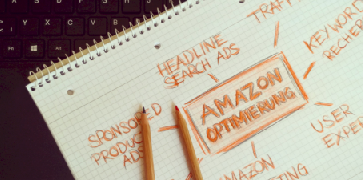 TRAFFI
HEADLINE
SEARCH ADS
KEYWOR
RECHE
AMAZON
OPTIMIERUNG
SPONSO
PRODUC
ADS
USER
EXPER
AMAZON